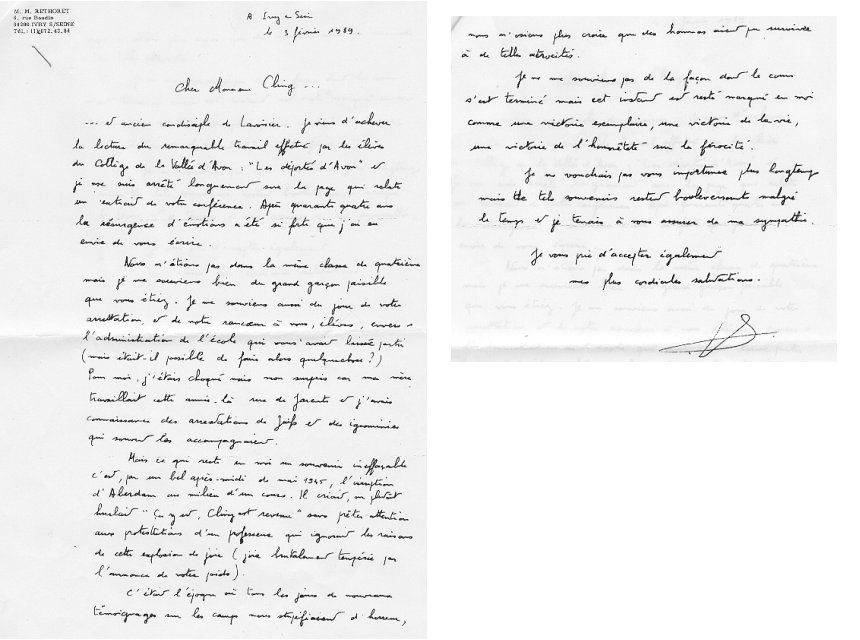 M. M. RETHORET
6, rue Baudin
94200 IVRY S/SEINE
TÉL.: (1) 672.43.84
A Ivry s/ Seine
le 3 février 1989.
Cher Monsieur Cling ...
... et ancien condisciple de Lavoisier. Je viens d'achever
la lecture du remarquable travail effectué par les élèves
du Collège de la Vallée d'Avon : "Les déportés d'Avon" et
je me suis arrêté longuement sur la page qui relate
un extrait de votre conférence. Après quarante quatre ans
la résurgence d'émotions a été si forte que j'ai eu
envie de vous écrire.
Nous n'étions pas dans la même classe de quatrième
mais je me souviens bien du grand garçon paisible
que vous étiez. Je me souviens aussi du jour de votre
arrestation, et de notre rancoeur à nous, élèves, envers
l'administration de l'école qui vous avait laissé partir
(mais était-il possible de faire alors quelquechose ?)
Pour moi, j'étais choqué mais non surpris car ma mère
travaillait cette année-là rue de Jarente et j'avais
connaissance des arrestations de Juifs et des ignominies
qui souvent les accompagnaient.
Mais ce qui reste en moi un souvenir ineffaçable
c'est, par un bel après-midi de mai 1945, l'irruption
d'Aberdam au milieu d'un cours. Il criait, ou plutôt
hurlait "Ça y est, Cling est revenu" sans prêter attention
aux protestations d'un professeur qui ignorait les raisons
de cette explosion de joie (joie brutalement tempérée par
l'annonce de votre poids).
C'était l'époque où tous les jours de nouveaux
témoignages sur les camps nous stupéfiaient d'horreur,
nous n'osions plus croire que des hommes aient pu survivre
à de telles atrocités.
Je ne me souviens pas de la façon dont le cours
s'est terminé mais cet instant est resté marqué en moi
comme une victoire exemplaire, une victoire de la vie,
une victoire de l'honnêteté sur la férocité.
Je ne voudrais pas vous importuner plus longtemps
mais de tels souvenirs restent bouleversants malgré
le temps et je tenais à vous assurer de ma sympathie.
Je vous prie d'accepter également
mes plus cordiales salutations.